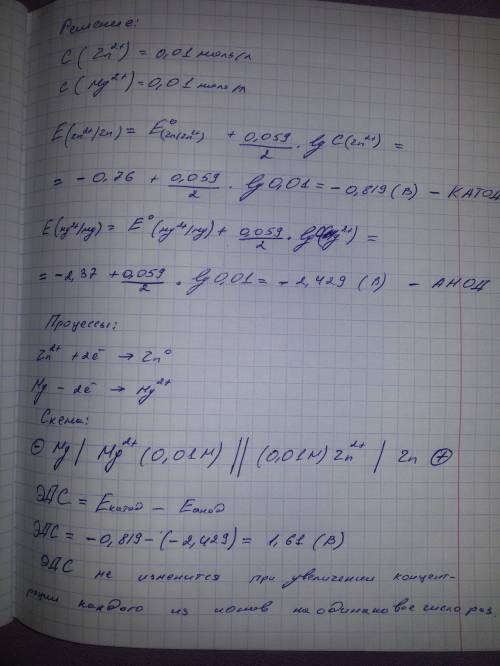 Решение:
C(Zn²⁺) = 0,01 моль/л
C(Mg²⁺) = 0,01 моль/л
E(Zn²⁺/Zn) = E°(Zn/Zn²⁺) + 0,059/2 · lg C(Zn²⁺) =
= -0,76 + 0,059/2 · lg 0,01 = -0,819 (В) - КАТОД
E(Mg²⁺/Mg) = E°(Mg²⁺/Mg) + 0,059/2 · lg C(Mg²⁺) =
= -2,37 + 0,059/2 · lg 0,01 = -2,429 (В) - АНОД
Процессы:
Zn²⁺ + 2ē → Zn⁰
Mg - 2ē → Mg²⁺
Схема:
⊖ Mg | Mg²⁺ (0,01М) || (0,01М) Zn²⁺ | Zn ⊕
ЭДС = Eкатод - Eанод
ЭДС = -0,819 - (-2,429) = 1,61 (В)
ЭДС не изменится при увеличении концент-
рации каждого из ионов на одинаковое число раз.